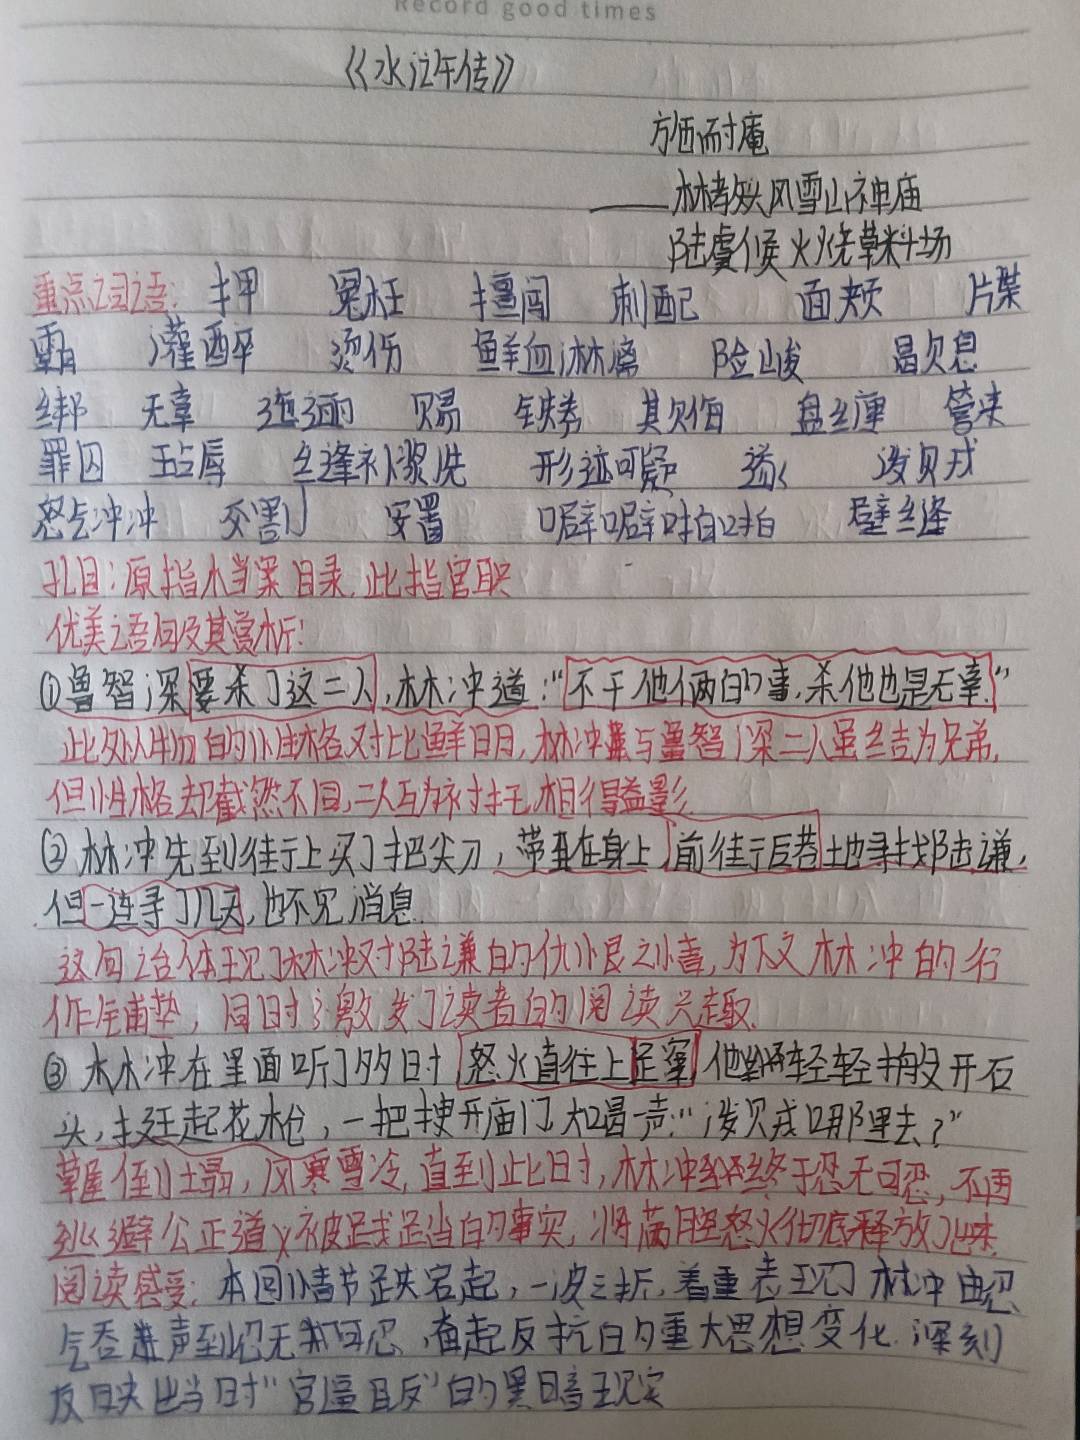 Record good times
《水浒传》
施耐庵
——林教头风雪山神庙
陆虞候火烧草料场
重点词语: 押 冤枉 擅闯 刺配 面颊 片牒
霸 灌醉 烫伤 鲜血淋漓 险峻 歇息
绑 无辜 迤逦 赐 铁券 其贝 盘缠 管束
罪囚 玷辱 缝补浆洗 形迹可疑 泼贼
怒气冲冲 交割 安置 噼噼啪啪 壁缝
孔目:原指档案目录,此指官职
优美语句及其赏析:
①鲁智深要杀了这二人,林冲道:“不干他俩的事,杀他也是无辜.”
此处人物的性格对比鲜明,林冲与鲁智深二人虽结为兄弟,
但性格却截然不同,二人互为衬托,相得益彰
②林冲先到街上买了把尖刀,带在身上,前街后巷地寻找陆谦,
但一连寻了几天,也不见消息.
这句话体现了林冲对陆谦的仇恨之情,为下文林冲的行
作铺垫,同时激发了读者的阅读兴趣.
③林冲在里面听了多时怒火直往上窜他轻轻搬开石
头,挺起花枪,一把拽开庙门,大喝一声:“泼贼哪里去?”
草屋倒塌,风寒雪冷,直到此时,林冲终于忍无可忍,不再
逃避公正道义被践踏的事实,将满腔怒火彻底释放出来.
阅读感受:本回情节跌宕起,一波三折,着重表现了林冲由忍
气吞声到忍无可忍,奋起反抗的重大思想变化.深刻
反映出当时“官逼民反”的黑暗现实